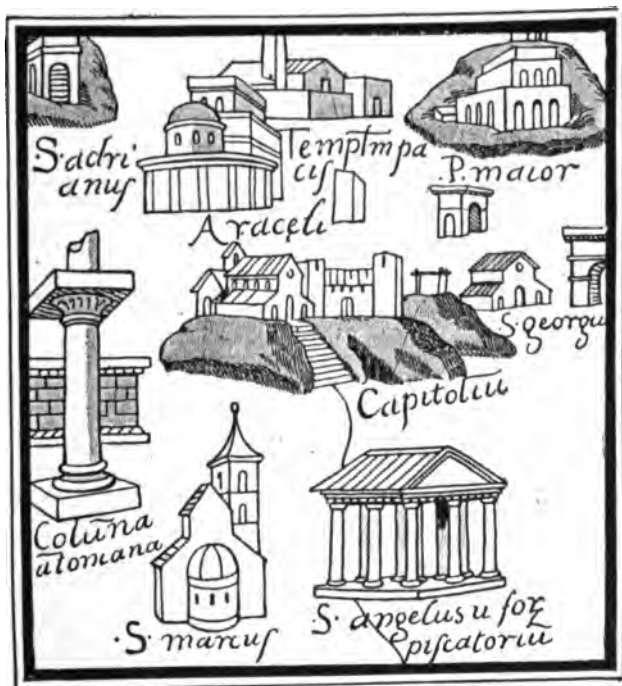 ·S· adri
anus
Templm pa
cis
·P· maior
Aracęli
S. georgii
Capitoliū
Colūna
atoniana
·S· marcus
·S· angelus ū for
piscatoriū